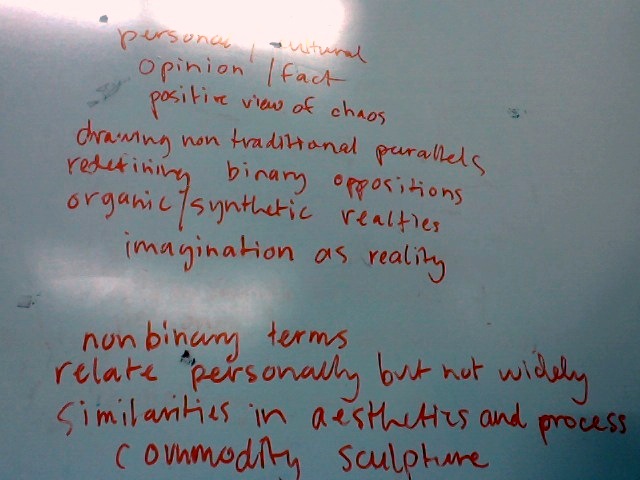 personal / cultural
opinion / fact
positive view of chaos
drawing non traditional parallels
redefining binary oppositions
organic/synthetic realties
imagination as reality
nonbinary terms
relate personally but not widely
similarities in aesthetics and process
commodity sculpture